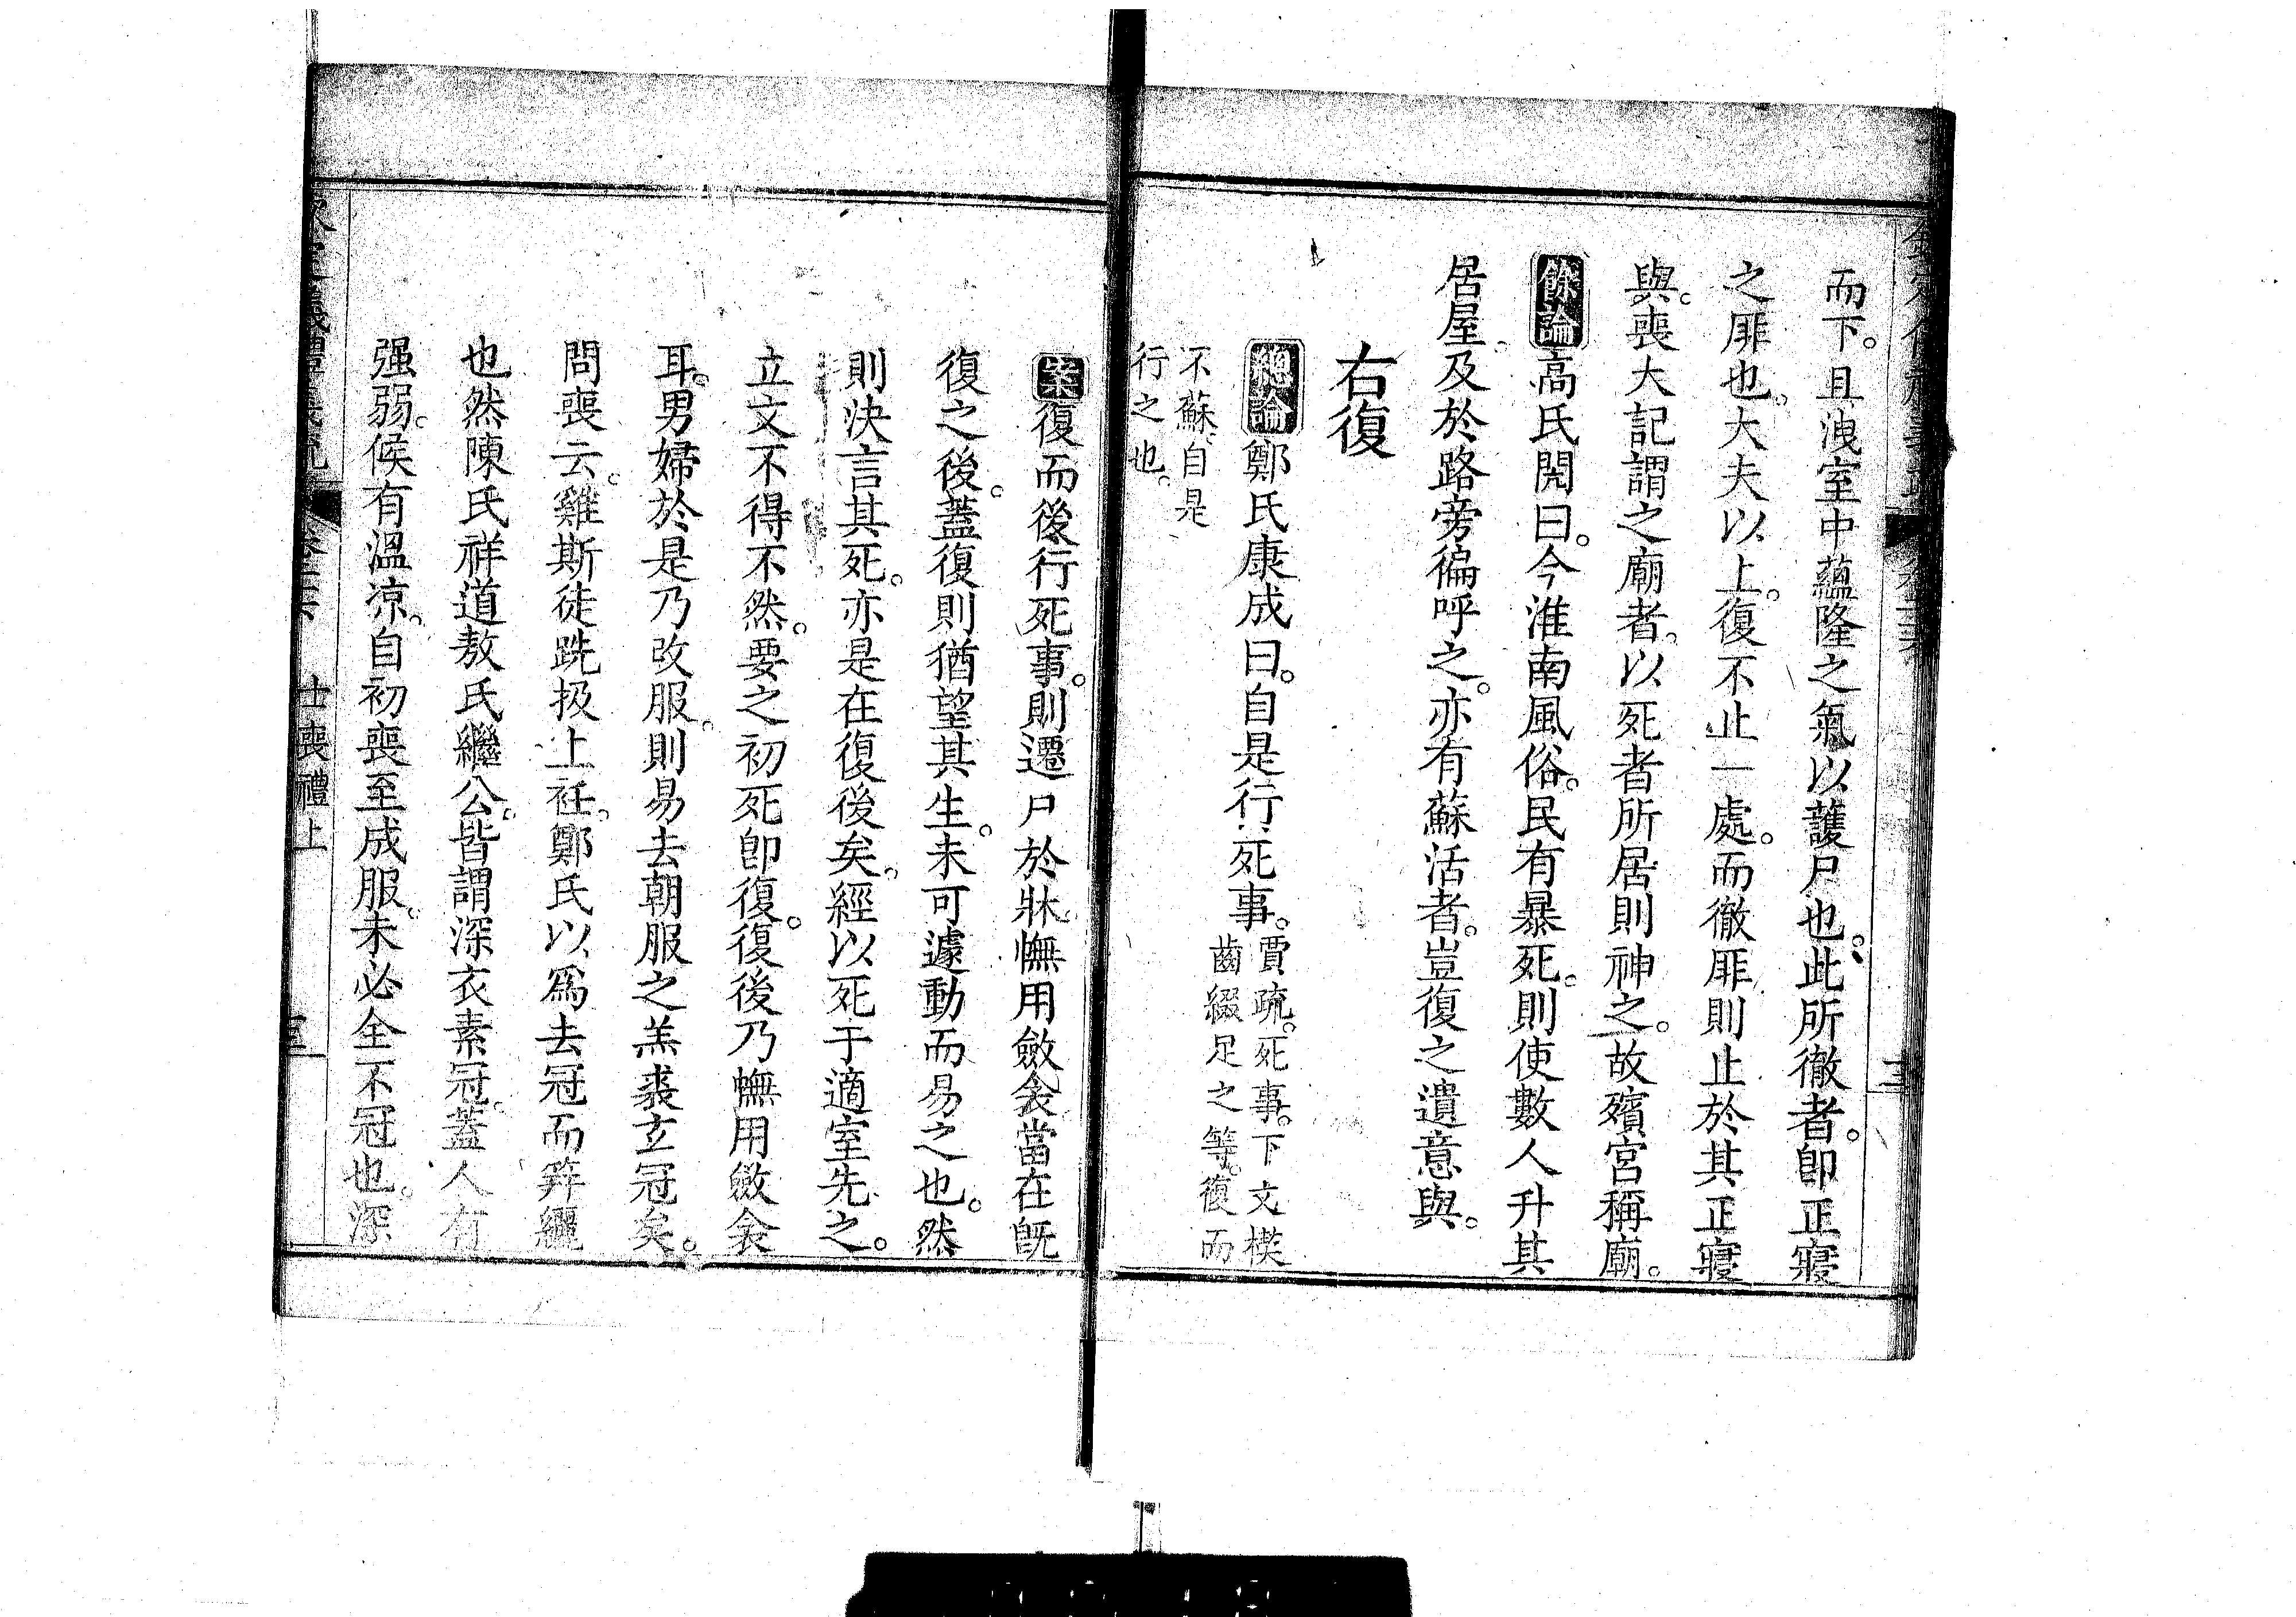 而下。且洩室中蘊隆之氣以護尸也。此所徹者。卽正寢
之厞也。大夫以上。復不止一處。而徹厞則止於其正寢
與。喪大記謂之廟者。以死者所居則神之。故殯宮稱廟。
餘論高氏閌曰。今淮南風俗。民有暴死。則使數人升其
居屋。及於路旁徧呼之。亦有蘇活者。豈復之遺意與。
右復
總論鄭氏康成曰。自是行死事。賈疏。死事。下文楔
齒綴足之等。復而
不蘇。自是
行之也。
案復而後行死事。則遷尸於牀。幠用斂衾當在旣
復之後。蓋復則猶望其生。未可遽動而易之也。然
則決言其死。亦是在復後矣。經以死于適室先之。
立文不得不然。要之初死卽復。復後乃幠用斂衾
耳。男婦於是乃改服。則易去朝服之羔裘玄冠矣。
問喪云。雞斯徒跣扱上衽。鄭氏以爲去冠而笄纚
也然陳氏祥道敖氏繼公。皆謂深衣素冠。蓋人有
强弱。候有溫凉。自初喪至成服。未必全不冠也。深
士喪禮上